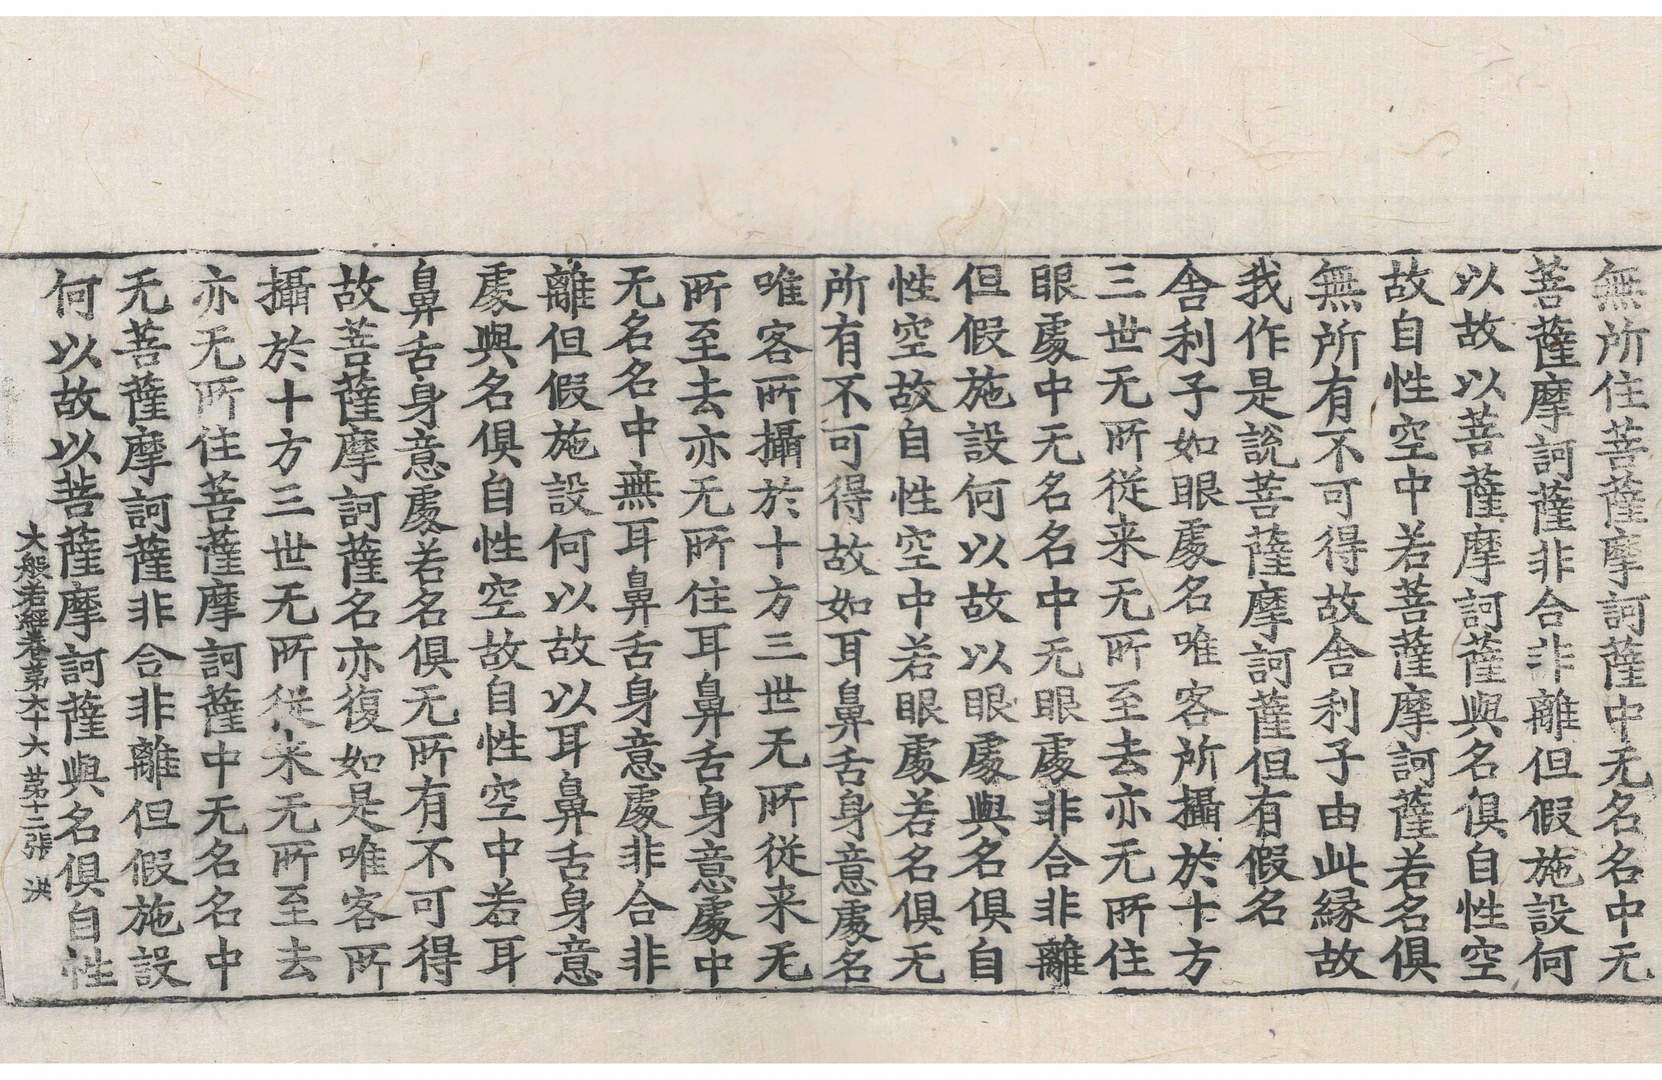 無所住菩薩摩訶薩中无名名中无
菩薩摩訶薩非合非離但假施設何
以故以菩薩摩訶薩與名俱自性空
故自性空中若菩薩摩訶薩若名俱
無所有不可得故舎利子由此縁故
我作是說菩薩摩訶薩但有假名
舎利子如眼處名唯客所攝於十方
三世无所從来无所至去亦无所住
眼處中无名名中无眼處非合非離
但假施設何以故以眼處與名俱自
性空故自性空中若眼處若名俱无
所有不可得故如耳鼻舌身意處名
唯客所攝於十方三世无所從来无
所至去亦无所住耳鼻舌身意處中
无名名中無耳鼻舌身意處非合非
離但假施設何以故以耳鼻舌身意
處與名俱自性空故自性空中若耳
鼻舌身意處若名俱无所有不可得
故菩薩摩訶薩名亦復如是唯客所
攝於十方三世无所從来无所至去
亦无所住菩薩摩訶薩中无名名中
无菩薩摩訶薩非合非離但假施設
何以故以菩薩摩訶薩與名俱自性
大般若經卷第六十六 苐十二張 洪